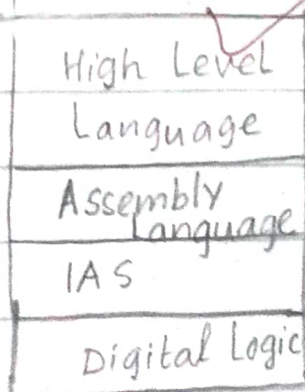 High Level
Language
Assembly
Language
IAS
Digital Logic